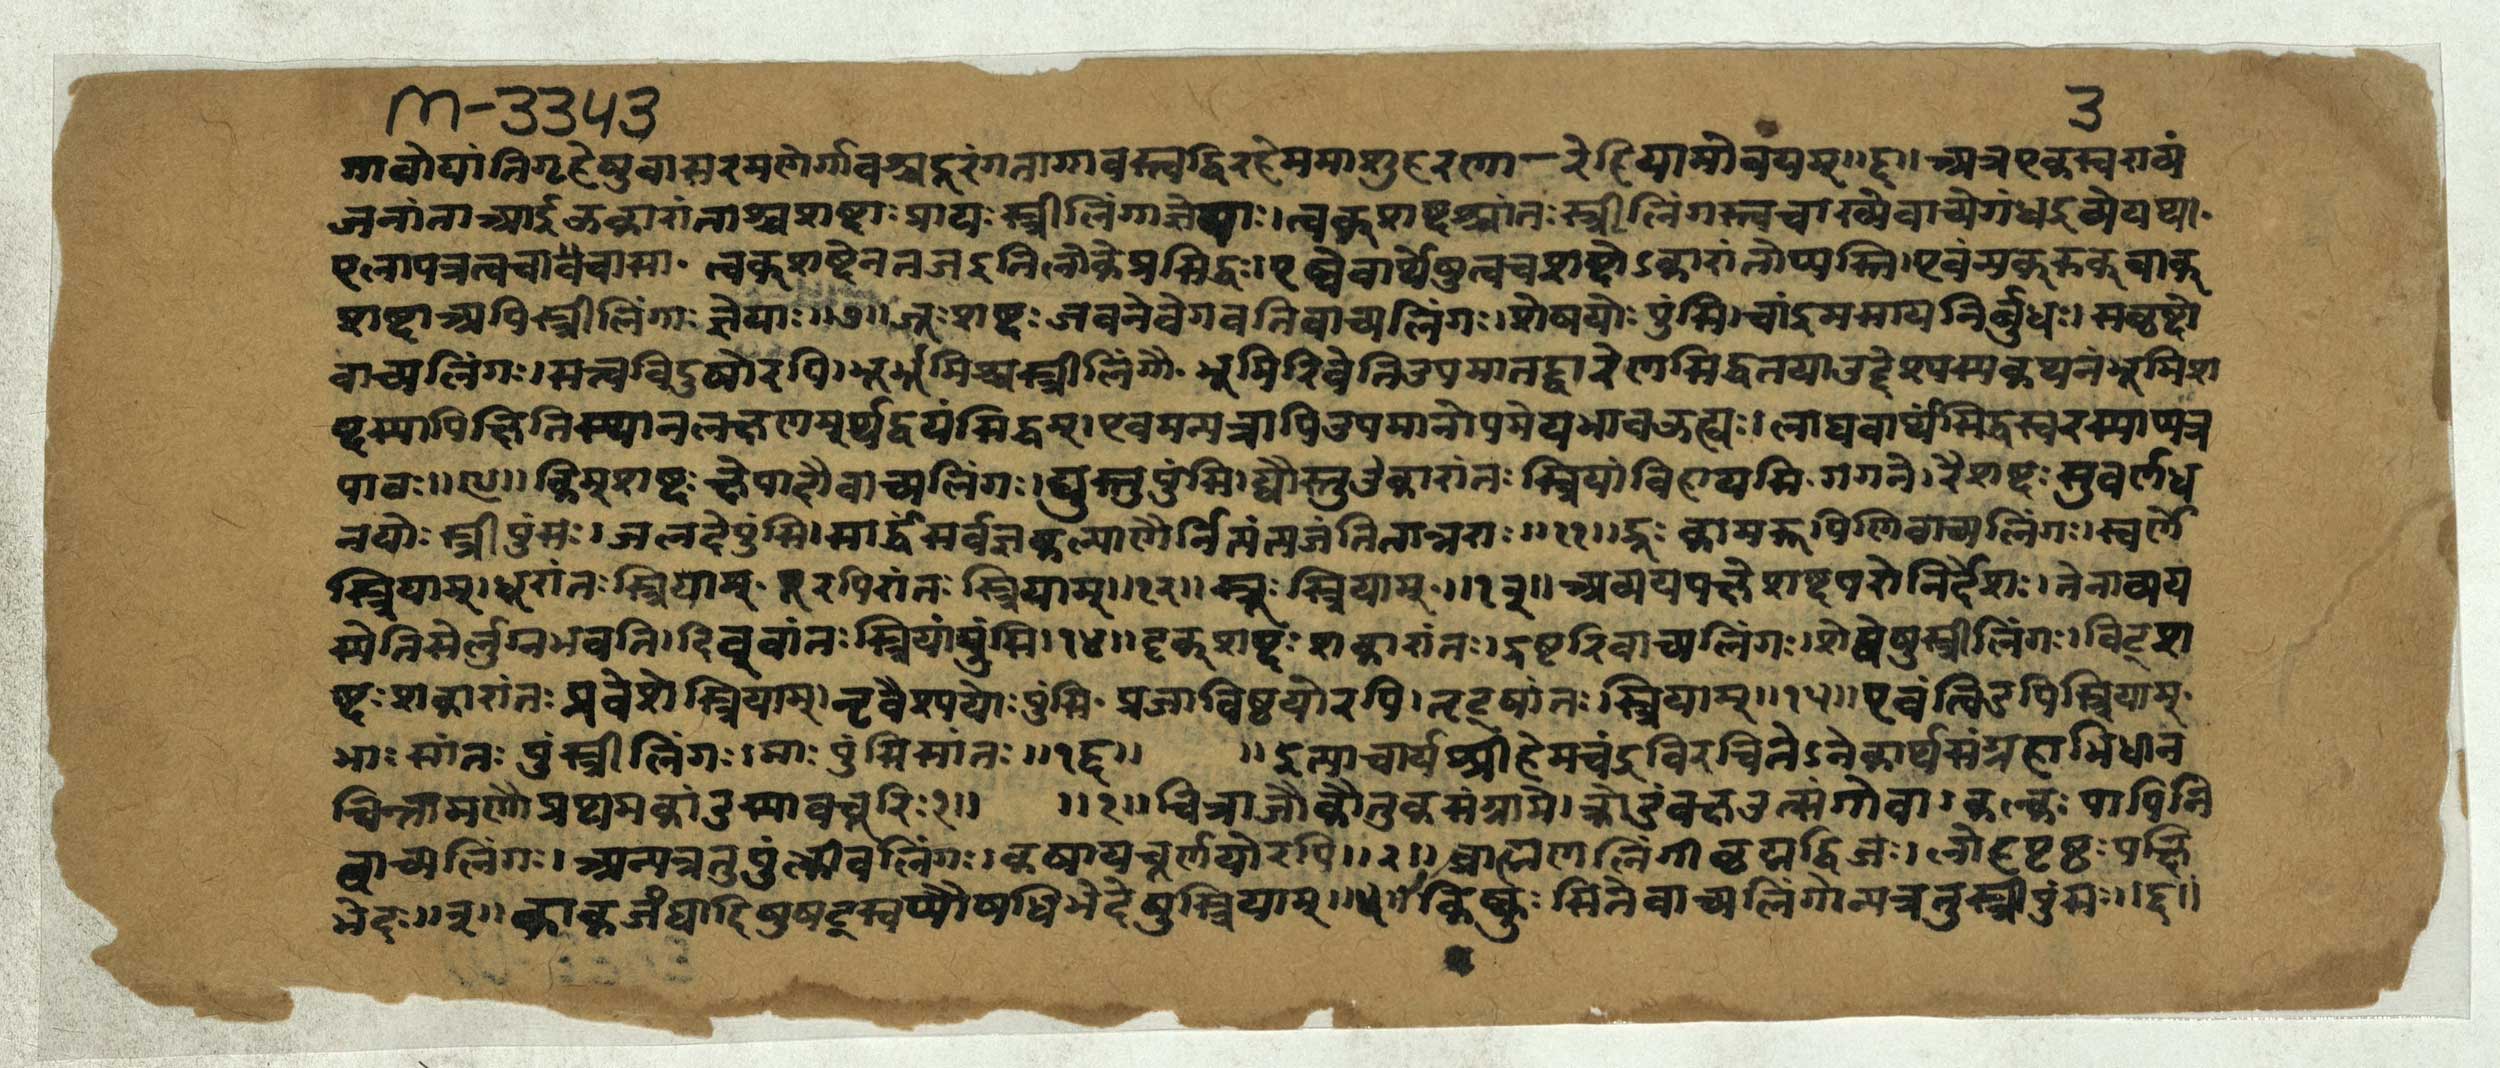 M-3343
3
गावोयांतिगृहेषुवासरमणेर्गावश्च दूरंगतागावस्त्वद्विरहेममाशु हरिणा — रेहियामोवयम्॥६॥ अत्रएकस्वराव्यं
जनांता आईऊकारांताश्चशब्दाः प्रायः स्त्रीलिंगाज्ञेयाः। त्वक्शब्दश्चांतः स्त्रीलिंगस्त्वचाख्येवाच्येगंधद्रव्येयथा·
एलापत्रत्वचा वासा· त्वक्शब्देनतजइतिलोकेप्रसिद्धः। एष्वेवार्थेषुत्वचशब्दोऽकारांतोप्यस्ति। एवंस्रक्रुक्वाक्
शब्दाअपिस्त्रीलिंगाः ज्ञेयाः॥७॥ जूःशब्दः जवनेवेगवतिवाच्यलिंगः। शेषयोः पुंसि। चांद्रमसायनिर्बुधः। सच्छब्दो
वाच्यलिंगः। सत्त्वविदुषोरपि। भूर्भूमिश्चस्त्रीलिंगौ· भूमिरिवेतिउपमानद्वारेणसिद्धतयाउद्देश्यस्यकथनंभूमिश
ब्दस्यापिक्षितिस्थानलक्षणमर्थद्वयंसिद्धम्। एवमन्यत्रापिउपमानोपमेयभावऊह्यः। लाघवार्थंसिद्धस्वरस्याप्यत्र
पावः॥ ॥ किम्शब्दः क्षेपादौवाच्यलिंगः। द्युस्तुपुंसि। द्यौस्तुओकारांतः स्त्रियांविहायसि· गगने। रैशब्दः सुवर्णध
नयोः स्त्रीपुंसः। जलदेपुंसि। सार्द्धंसर्वज्ञकल्याणैर्नित्यंत्यजंतितान्नराः॥११॥ द्रूः कामरूपिणिवाच्यलिंगः। स्वर्णे
स्त्रियाम्। धूरांतः स्त्रियाम्· पूरपिरांतः स्त्रियाम्॥१२॥ स्रूः स्त्रियाम्·॥१३॥ अव्ययपक्षेशब्दपरोनिर्देशः। तेनाव्यय
स्येतिसेर्लुग्नभवति। दिव्वांतः स्त्रियांपुंसि।१४॥ दृक्शब्दः शकारांतः। द्रष्टरिवाच्यलिंगः। शेषेषुस्त्रीलिंगः। विट्श
ब्दः शकारांतः प्रवेशेस्त्रियाम्। नृवैश्ययोः पुंसि· प्रजाविष्ठयोरपि। तृट्षांतः स्त्रियाम्॥१५॥ एवंत्विडपिस्त्रियाम्·
भाः सांतः पुंस्त्रीलिंगः। माः पुंसिसांतः॥१६॥ ॥इत्याचार्यश्रीहेमचंद्रविरचितेऽनेकार्थसंग्रहाभिधान
चिन्तामणौप्रथमकांडस्यावचूरिः१॥ ॥१॥ चित्राजौकौतुकसंग्रामे। क्रोडंवक्षउत्संगोवा। कल्कः पापिनि
वाच्यलिंगः। अन्यत्रतुपुंक्लीवलिंगः। कषायचूर्णयोरपि॥२॥ ब्राह्मणलिंगीछद्मद्विजः। लोहपृष्ठः पक्षि
भेदः॥३॥ काकजंघादिषुषट्स्वप्यौषधिभेदेषुस्त्रियाम्॥५॥ किष्कुः सितेवाच्यलिंगोन्यत्रतुस्त्रीपुंसः॥६॥